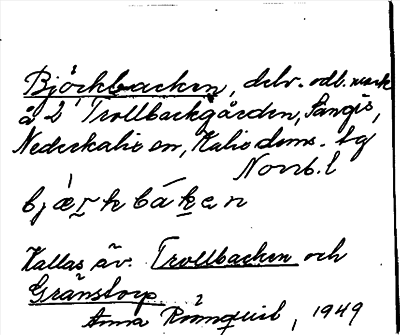 Björkbacken, delv. odl. mark
å 2 Trollbackgården, Sangis,
Nederkalix sn, Kalix doms. tg
Norrb. l
bjæ̀rkbákan
Kallas äv. Trollbacken och
Gränstorp
Anna Rönnquist, 1949